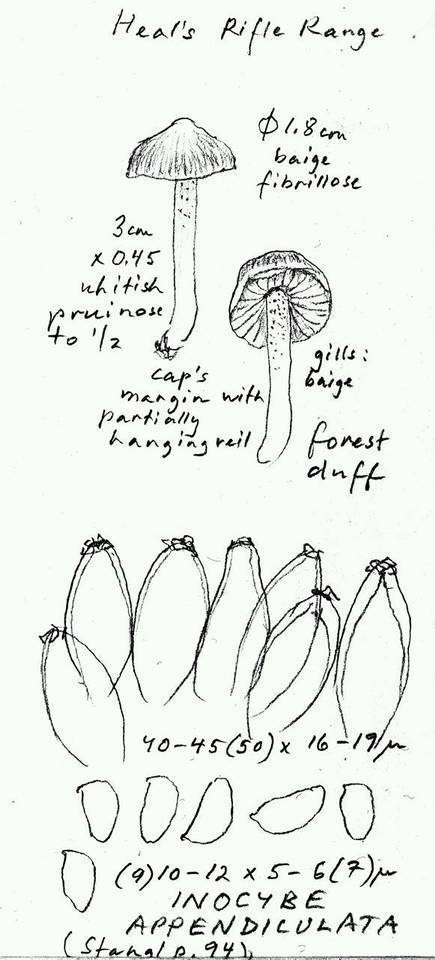 Heal's Rifle Range.
Φ1.8cm
baige
fibrillose
3cm
x 0.45
whitish
pruinose
to 1/2
cap's
margin with
partially
hanging veil
gills:
baige
forest
duff
40-45(50) x 16-19µ
(9)10-12 x 5-6(7)µ
INOCYBE
APPENDICULATA
(Stangl p. 94),